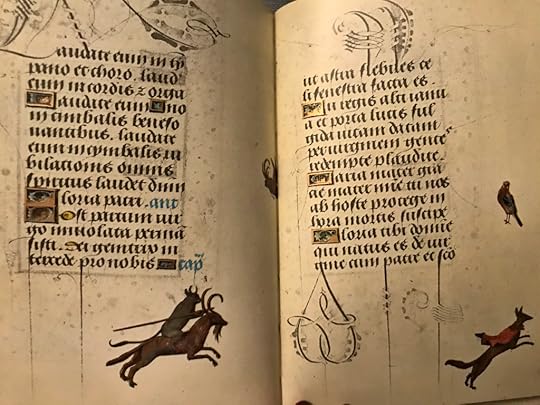 audate eum in tỹ
pano et choro. laud
eum in cordis ⁊ orga
audate eum no
in cimbalis beneso
nantibus. laudate
eum in cymbalis iu
bilationis omnis
spiritus laudet dnm
loria patri. ant
ost partum uir
go inuiolata permã
sisti. dei genitrix in
tercede pro nobis cap
ut astra flebiles ce
li fenestra facta es.
u regis alti ianu
a et porta lucis ful
gida uitam datam
per uirginem gentes
redempte plaudite.
aria mater gra
cie mater mie tu nos
ab hoste protege in
hora mortis suscipe
loria tibi domine
qui natus es de uir
gine cum patre et sco